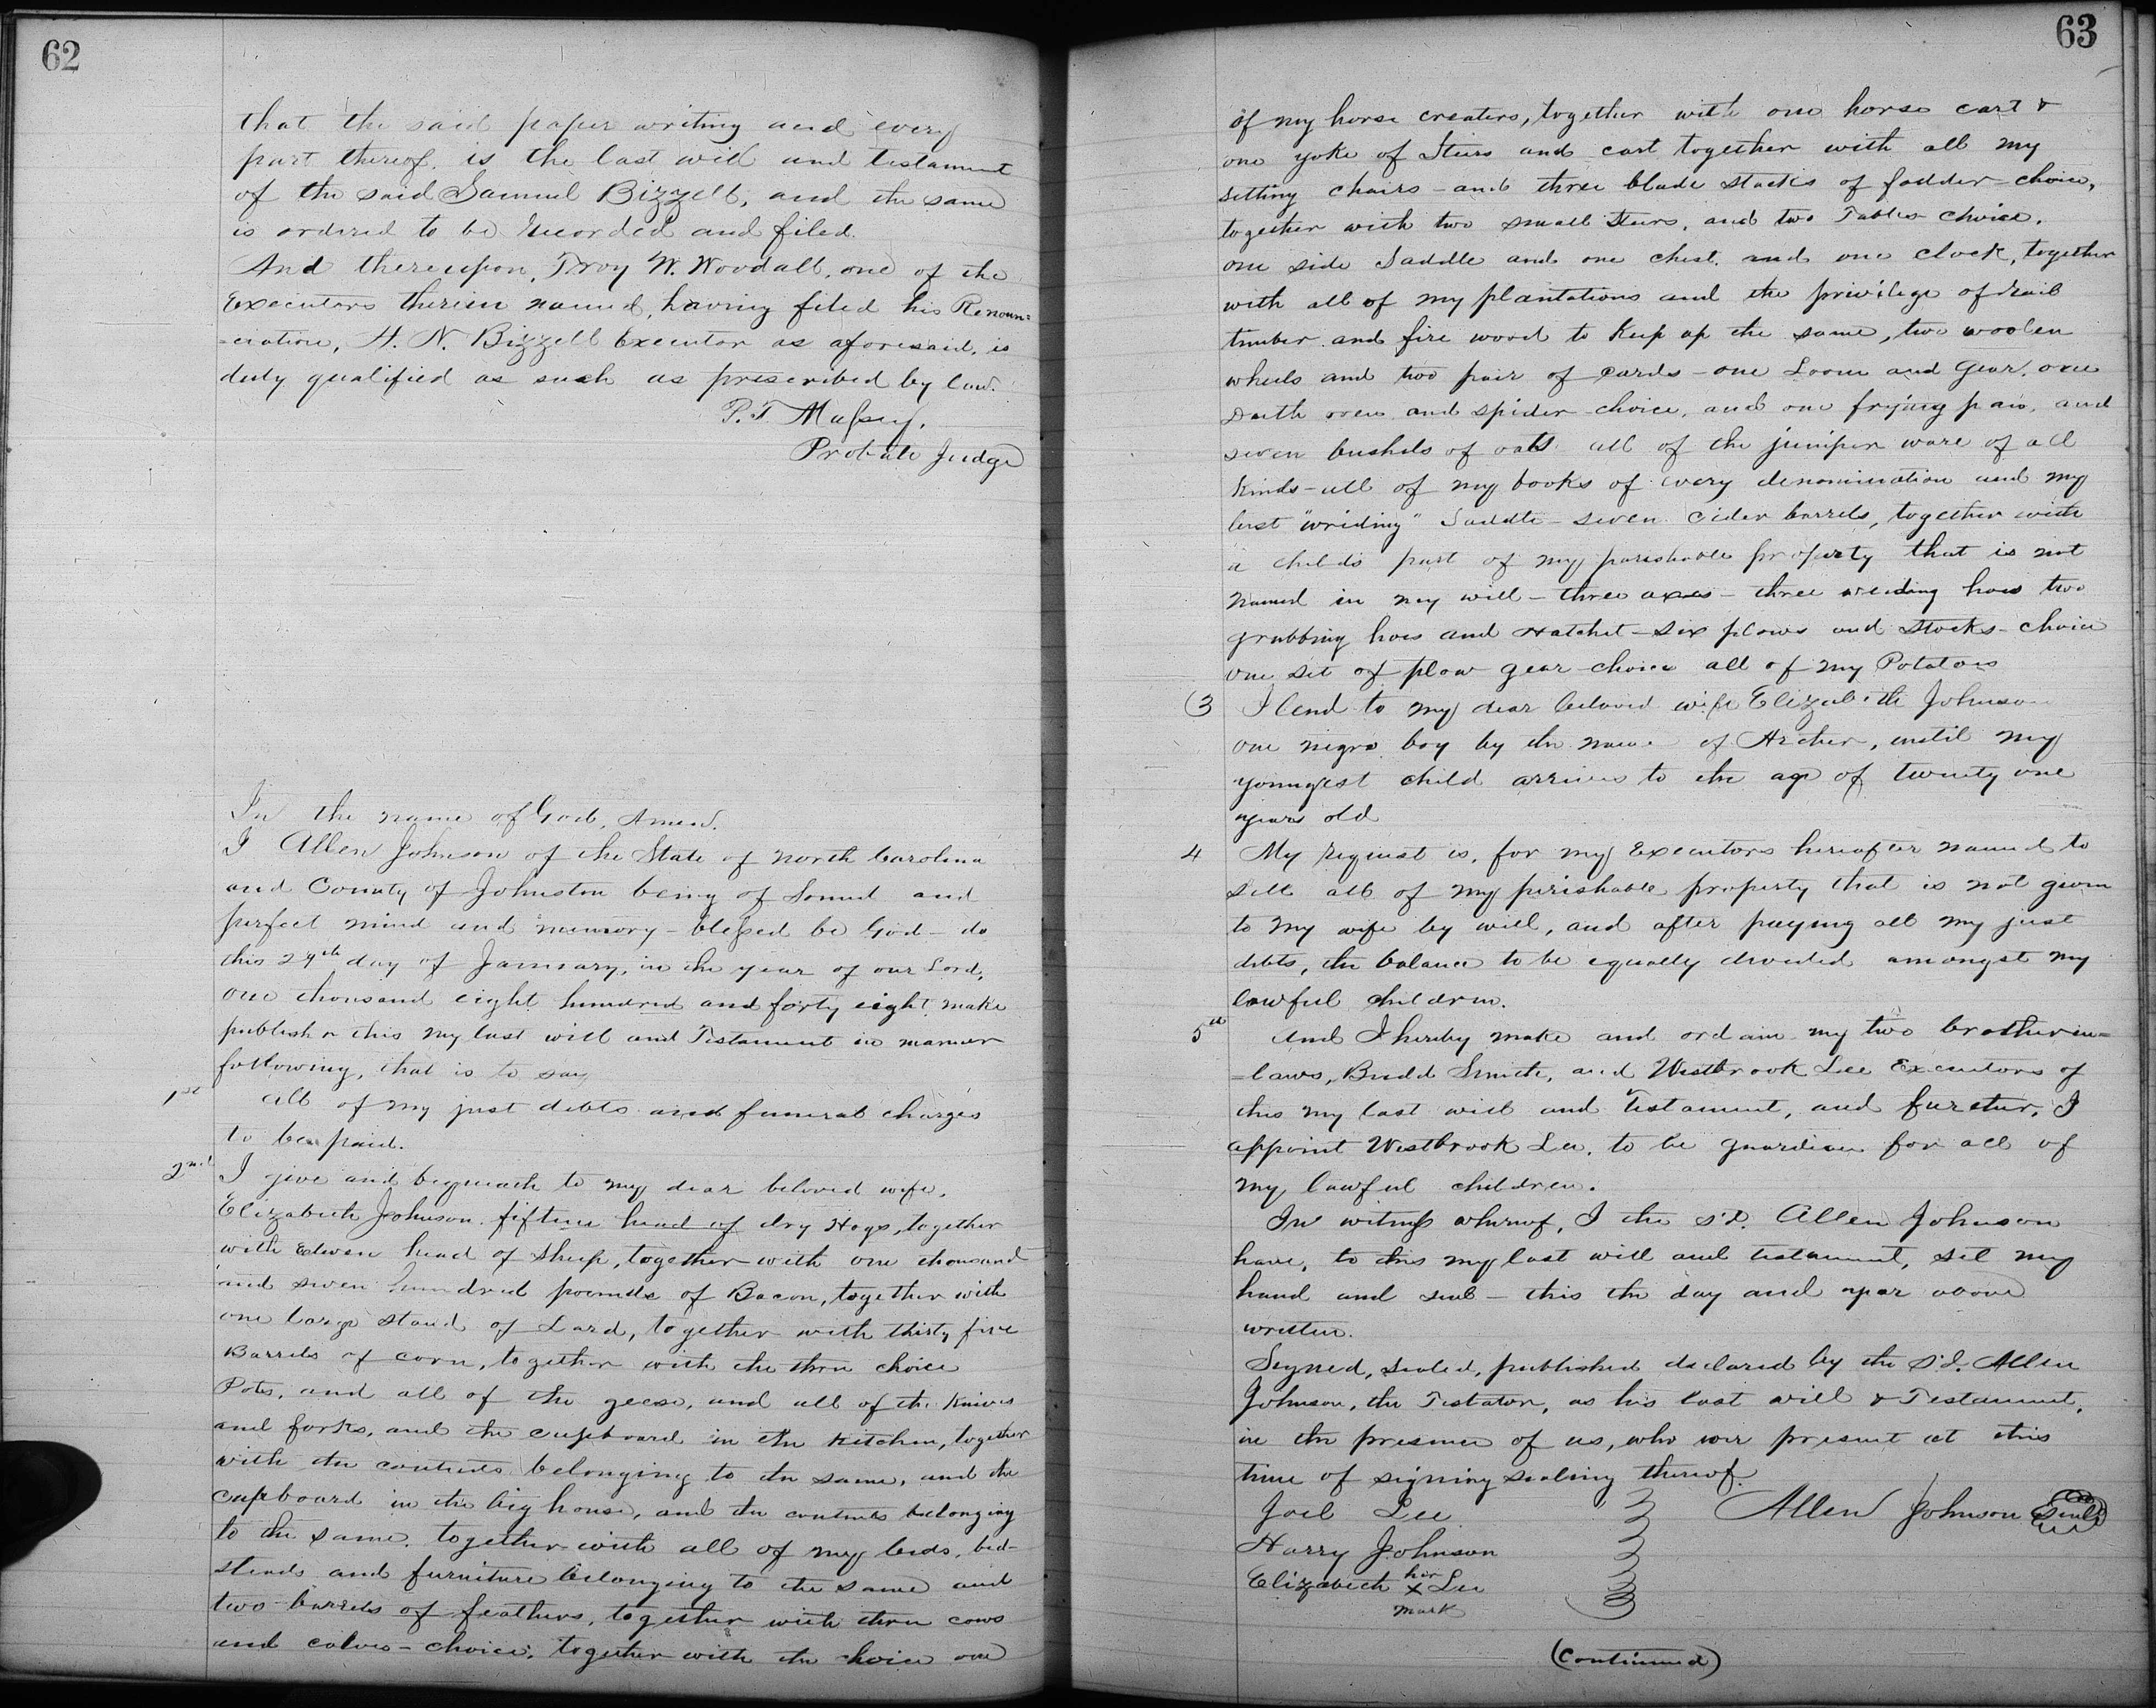 62
that the said paper writing and every
part thereof, is the last will and testament
of the said Samuel Bizzell, and the same
is ordered to be recorded and filed.
And thereupon, Troy W. Woodall, one of the
Executors therein named, having filed his Renoun=
-ciation, H. N. Bizzell Executor as aforesaid, is
duly qualified as such as prescribed by law.
P. T. Massey,
Probate Judge
In the name of God, Amen.
I Allen Johnson of the State of North Carolina
and County of Johnston being of Sound and
perfect mind and memory - blessed be God - do
this 29th day of January, in the year of our Lord,
one thousand eight hundred and forty eight, make
publish this my last will and Testament in manner
following, that is to say
1st All of my just debts and funeral charges
to be paid.
2nd I give and bequeath to my dear beloved wife,
Elizabeth Johnson. fifteen head of dry Hogs, together
with Eleven head of Sheep, together with one thousand
and seven hundred pounds of Bacon, together with
one large stand of Lard, together with thirty five
Barrels of corn, together with the three choice
Pots, and all of the geese, and all of the Knives
and forks, and the cupboard in the kitchen, together
with the contents belonging to the same, and the
cupboard in the big house, and the contents belonging
to the same, together with all of my beds, bed-
steads and furniture belonging to the same and
two barrels of feathers, together with three cows
and calves - choice, together with the choice one
63
of my horse creaters, together with one horse cart &
one yoke of Steers and cart together with all my
setting chairs - and three blade stacks of fodder - choice,
together with two small Steers, and two Tables choice.
one side Saddle and one chest. and one clock, together
with all of my plantations and the privilege of rail
timber and fire wood to keep up the same, two woolen
wheels and two pair of cards - one Loom and Gear. one
oven and spider - choice, and one frying pan, and
seven bushels of oats all of the juniper ware of all
kinds - all of my books of every denomination and my
best "wriding" Saddle - seven cider barrels, together with
a child's part of my parishable property that is not
named in my will - three axes - three weeding hoes two
grubbing hoes and Hatchet - six plows and Stocks - choice
one set of plow gear - choice all of my Potatoes
(3 I lend to my dear beloved wife Elizabeth Johnson
one negro boy by the name of Archer, until my
youngest child arrives to the age of twenty one
years old
4 My request is, for my Executors hereafter named to
sell all of my perishable property that is not given
to my wife by will, and after paying all my just
debts, the balance to be equally divided amongst my
lawful children.
5th And I hereby make and ordain my two brother in=
=laws, Budd Smith, and Westbrook Lee Executors of
this my last will and Testament, and further, I
appoint Westbrook Lee, to be guardian for all of
my lawful children.
In witness whereof, I the s'd. Allen Johnson
have, to this my last will and testament, set my
hand and seal - this the day and year above
written.
Signed, sealed, published declared by the s'd. Allen
Johnson, the Testator, as his last will & Testament,
in the presence of us, who wer present at this
time of signing sealing thereof.
Joel Lee Allen Johnson Seal
Harry Johnson
Elizabeth her x Lee
mark
(Continued)